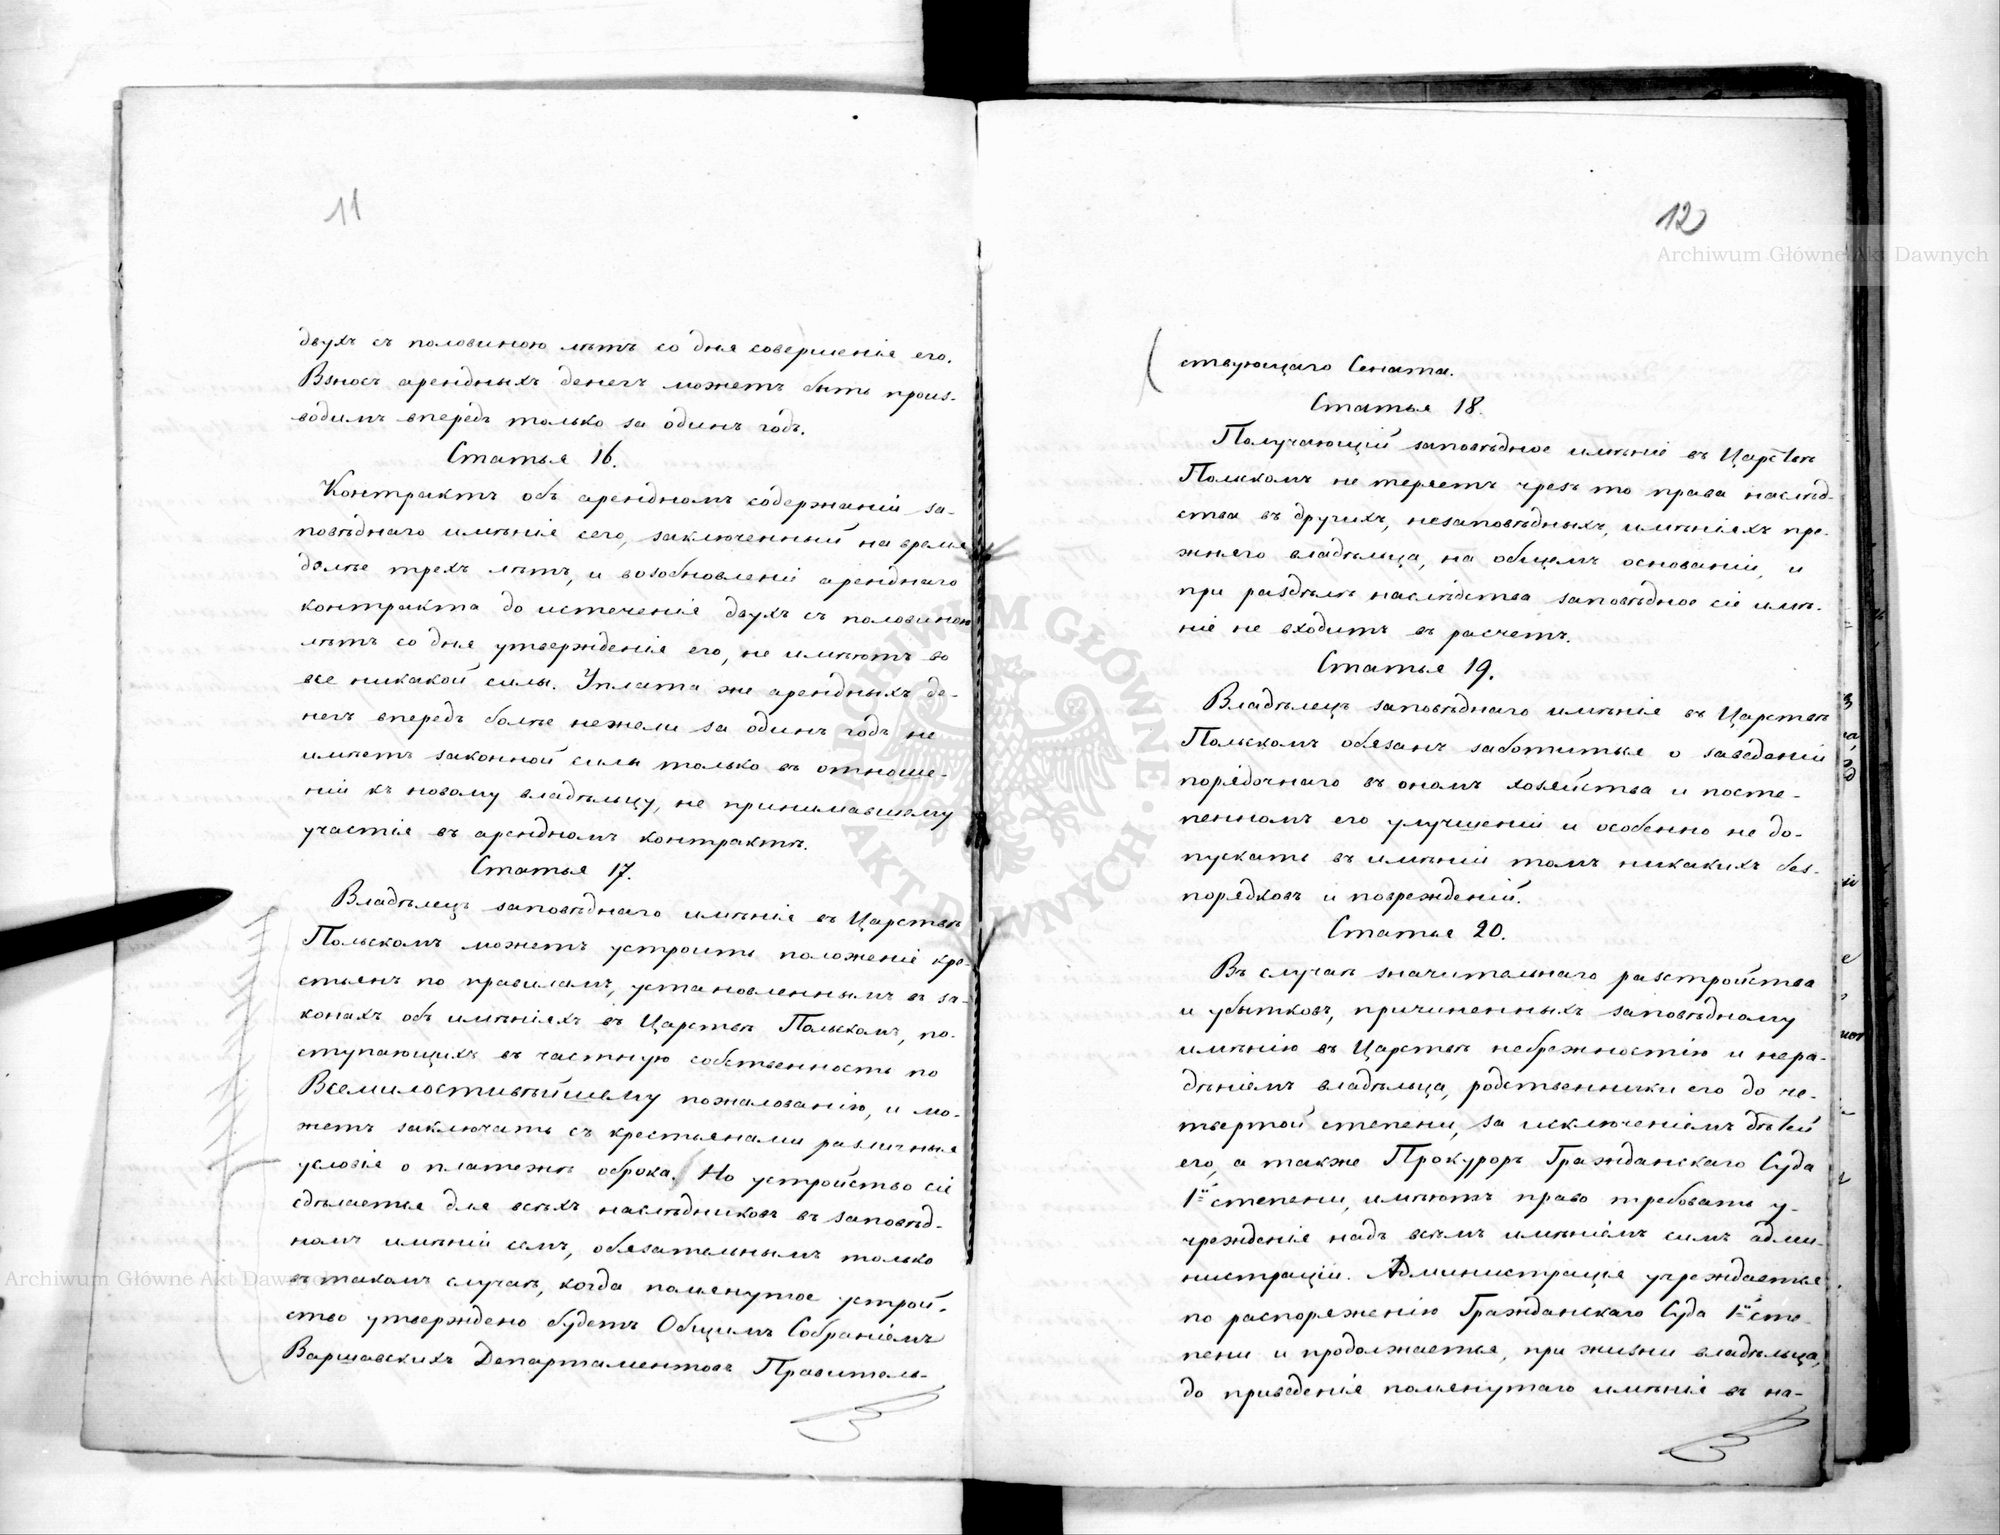 11
двухъ съ половиною лѣтъ со дня совершенія его.
Взносъ арендныхъ денегъ можетъ быть произ-
водимъ впередъ только за одинъ годъ.
Статья 16.
Контрактъ объ арендномъ содержаніи за-
повѣднаго имѣнія сего, заключенный на время
долѣе трехъ лѣтъ, и возобновленіе аренднаго
контракта до истеченія двухъ съ половиною
лѣтъ со дня утвержденія его, не имѣютъ во
все никакой силы. Уплата же арендныхъ де-
негъ впередъ болѣе нежели за одинъ годъ не
имѣетъ законной силы только въ отноше-
ніи къ новому владѣльцу, не принимавшему
участія въ арендномъ контрактѣ.
Статья 17.
Владѣлецъ заповѣднаго имѣнія въ Царствѣ
Польскомъ можетъ устроить положеніе кре-
стьянъ по правиламъ, установленнымъ въ за-
конахъ объ имѣніяхъ въ Царствѣ Польскомъ, по-
ступающихъ въ частную собственность по
Всемилостивѣйшему пожалованію, и мо-
жетъ заключать съ крестьянами различныя
условія о платежѣ оброка. Но устройство сіе
сдѣлается для всѣхъ наслѣдниковъ въ заповѣд-
номъ имѣніи семъ, обязательнымъ только
въ такомъ случаѣ, когда помянутое устрой-
ство утверждено будетъ Общимъ Собраніемъ
Варшавскихъ Департаментовъ Правитель-
12
ствующаго Сената.
Статья 18.
Получающій заповѣдное имѣніе въ Царствѣ
Польскомъ не теряетъ чрезъ то права наслѣд-
ства въ другихъ, незаповѣдныхъ, имѣніяхъ пре-
жняго владѣльца, на общемъ основаніи, и
при раздѣлѣ наслѣдства заповѣдное сіе имѣ-
ніе не входитъ въ расчетъ.
Статья 19.
Владѣлецъ заповѣднаго имѣнія въ Царствѣ
Польскомъ обязанъ заботиться о заведеніи
порядочнаго въ ономъ хозяйства и посте-
пенномъ его улучшеніи и особенно не до-
пускать въ имѣніи томъ никакихъ без-
порядковъ и поврежденій.
Статья 20.
Въ случаѣ значительнаго разстройства
и убытковъ, причиненныхъ заповѣдному
имѣнію въ Царствѣ небрежностію и нера-
дѣніемъ владѣльца, родственники его до че-
твертой степени, за исключеніемъ дѣтей
его, а также Прокуроръ Гражданскаго Суда
1й степени, имѣютъ право требовать у-
чрежденія надъ всѣмъ имѣніемъ симъ адми-
нистраціи. Администрація учреждается
по распоряженію Гражданскаго Суда 1й сте-
пени и продолжается, при жизни владѣльца,
до приведенія помянутаго имѣнія въ на-
Archiwum Główne Akt Dawnych
Archiwum Główne Akt Dawnych
ARCHIWUM GŁÓWNE AKT DAWNYCH